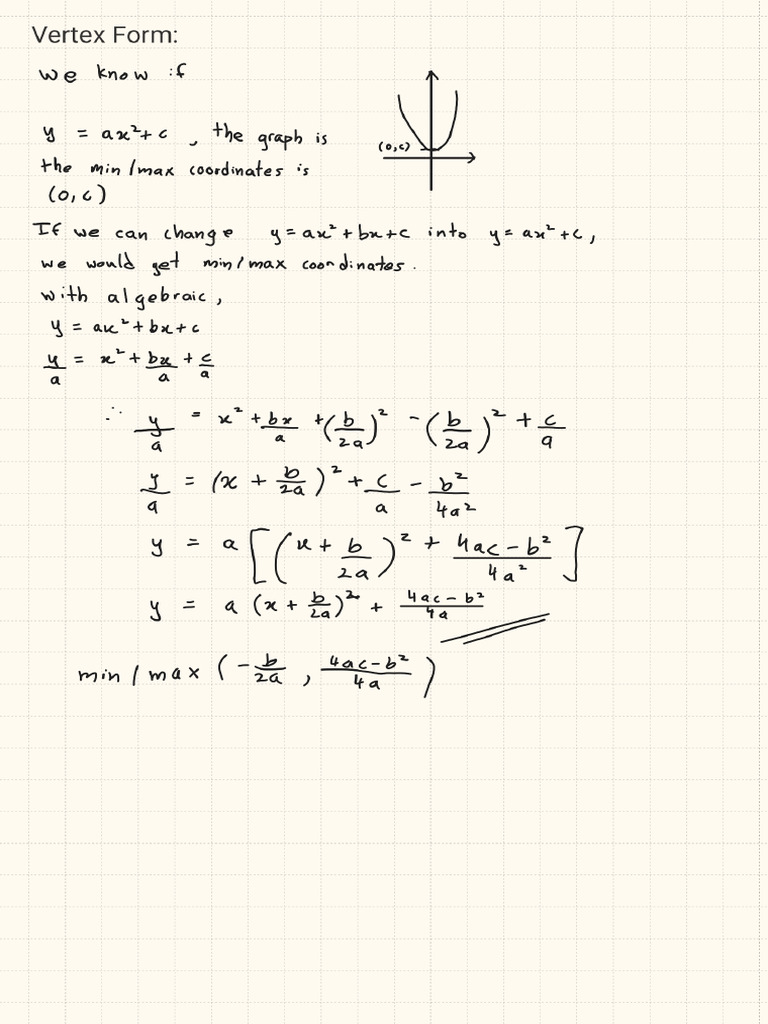 Vertex Form:
we know if
y = ax² + c , the graph is
(0,c)
the min/max coordinates is
(0, c)
If we can change y = ax² + bx + c into y = ax² + c,
we would get min/max coordinates.
with algebraic,
y = ax² + bx + c
y/a = x² + bx/a + c/a
∴ y/a = x² + bx/a + (b/2a)² - (b/2a)² + c/a
y/a = (x + b/2a)² + c/a - b²/4a²
y = a[(x + b/2a)² + (4ac - b²)/4a²]
y = a(x + b/2a)² + (4ac - b²)/4a
min/max (-b/2a, (4ac - b²)/4a)